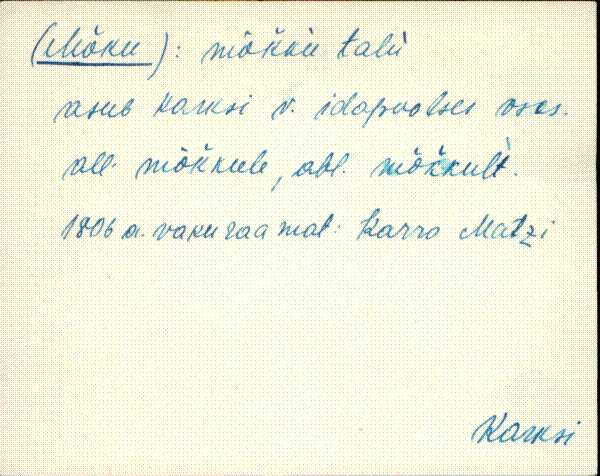 (Mõku): mõk̆k̆u talu
asub Karksi v. idapoolses osas.
all. mõk̆k̆ule, abl. mõk̆k̆ult.
1806 a. vakuraamat: Karro Matzi
Karksi